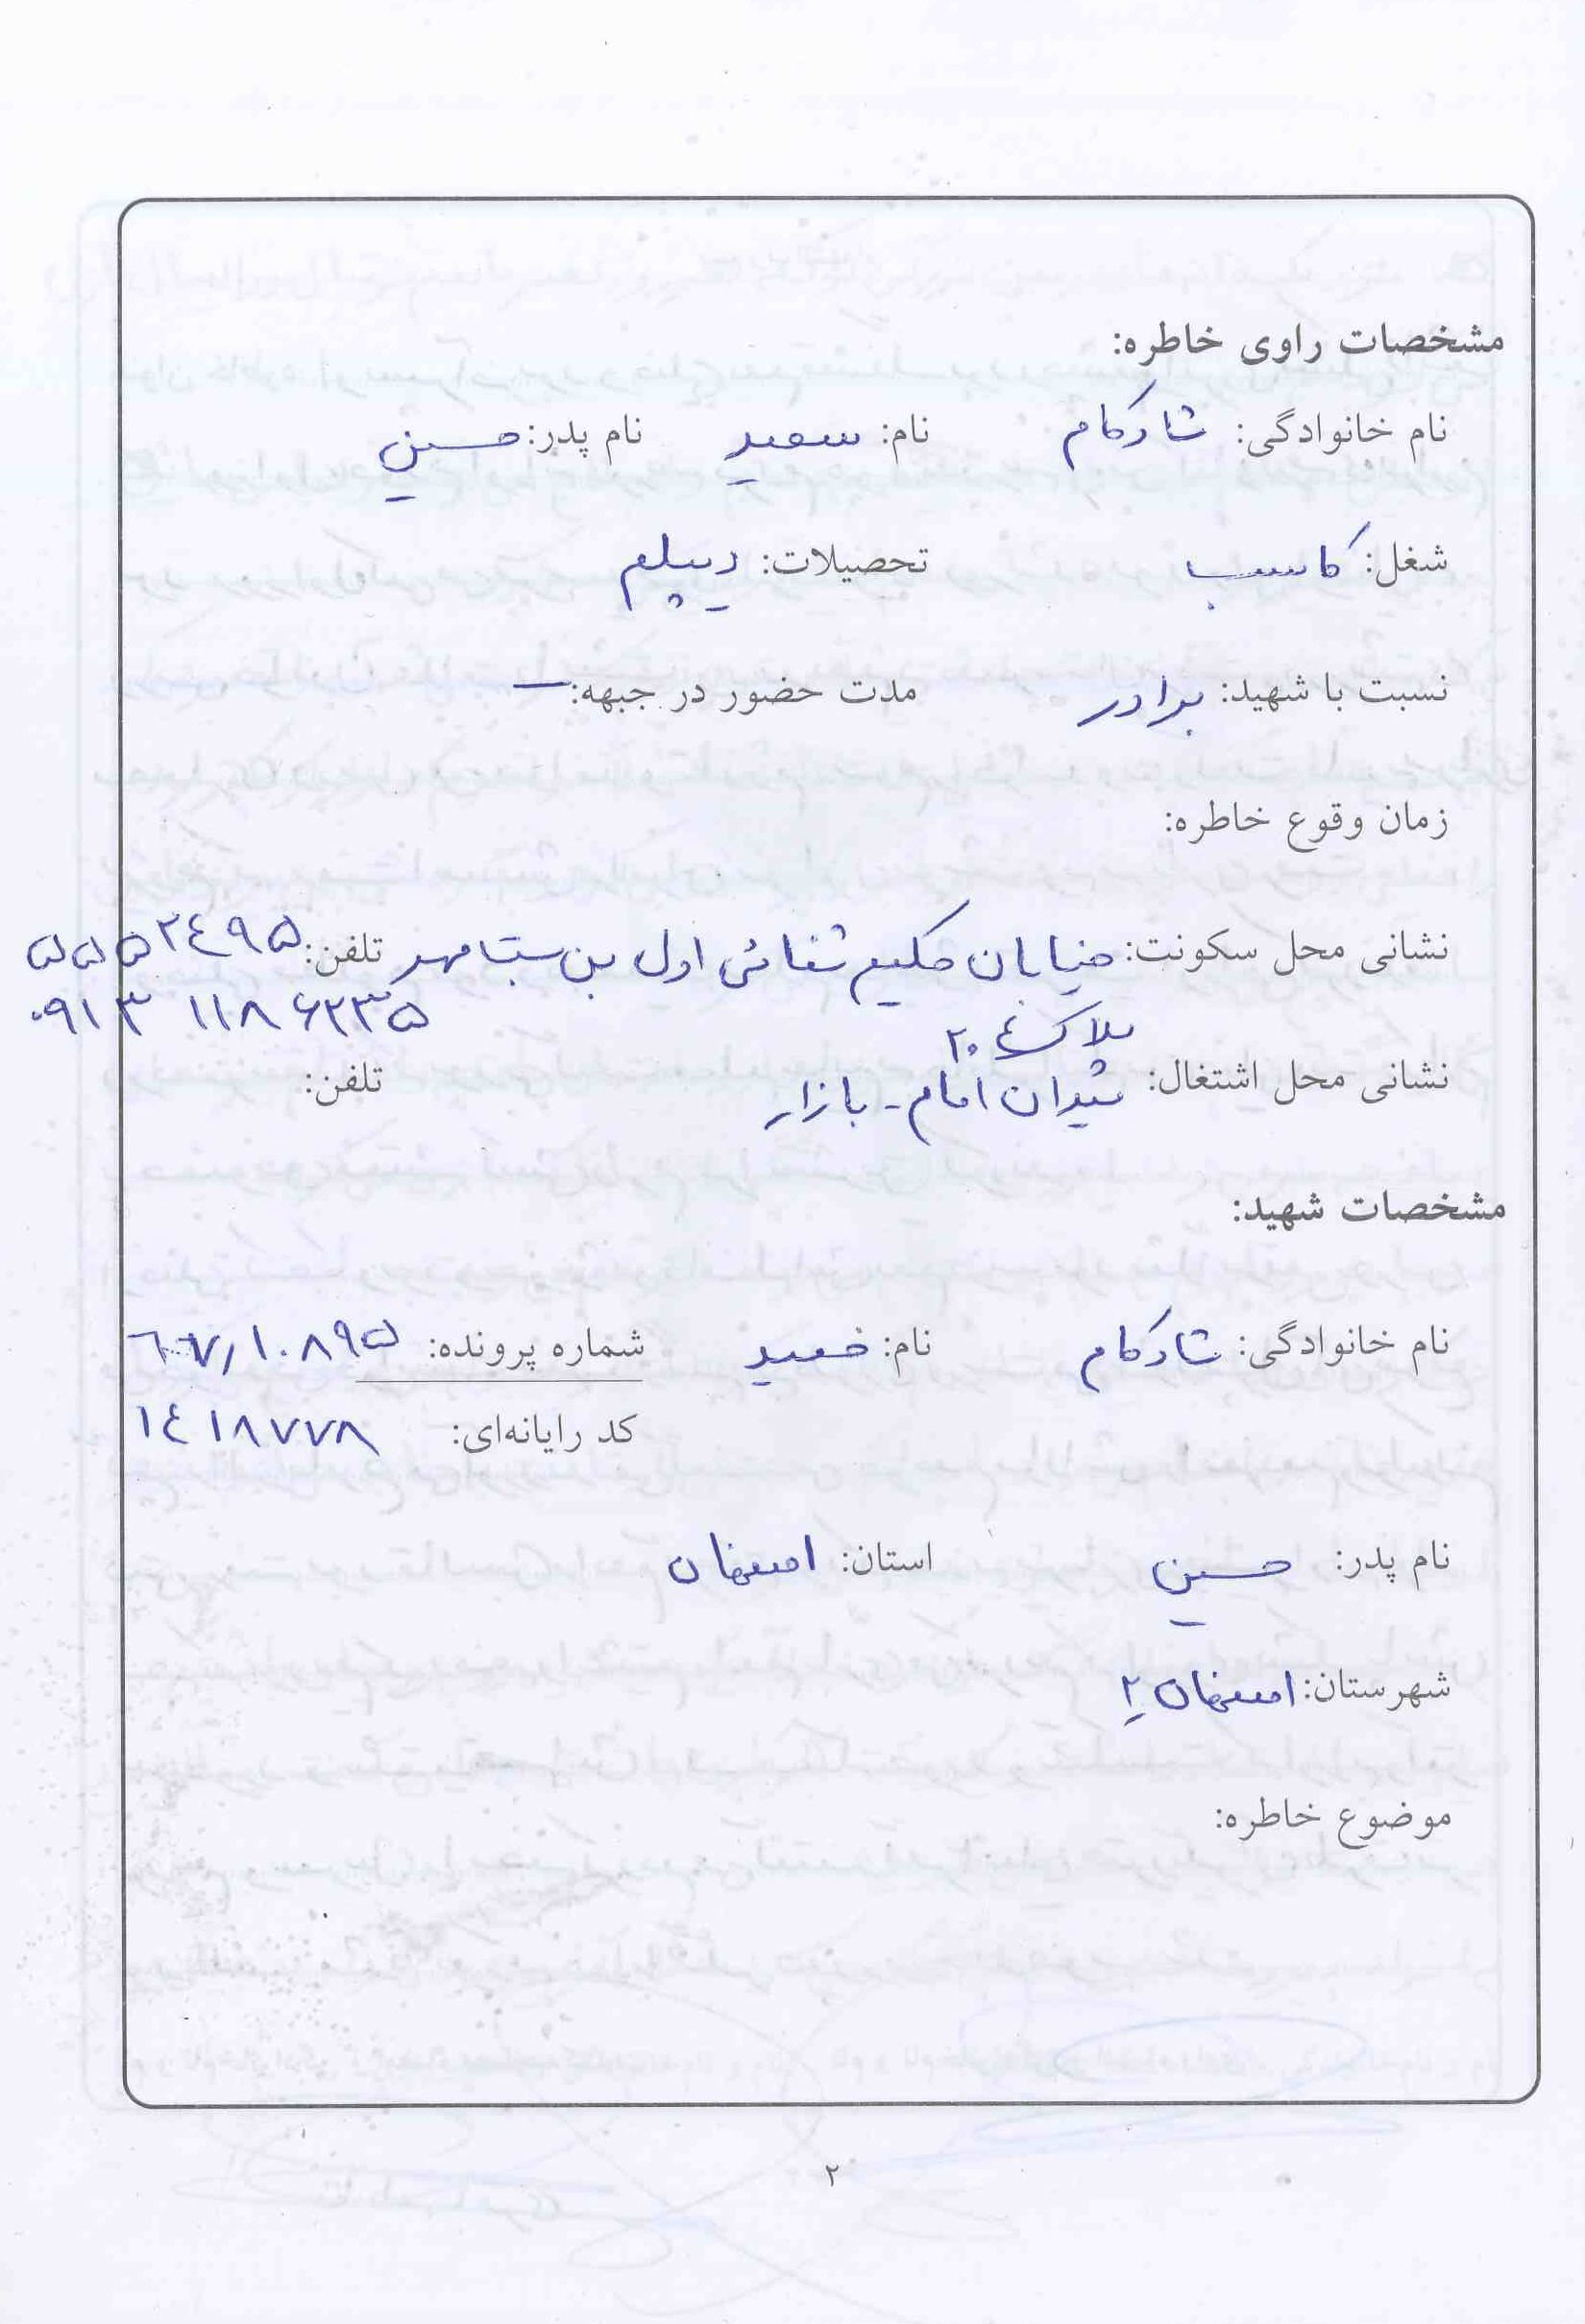 مشخصات راوی خاطره:
نام خانوادگی: شادکام نام: سعید نام پدر: حسین
شغل: کاسب تحصیلات: دیپلم
نسبت با شهید: برادر مدت حضور در جبهه: —
زمان وقوع خاطره:
نشانی محل سکونت: خیابان حکیم شفائی اول بن بست مهر تلفن: ۵۵۵۲۴۹۵
پلاک ۲۰۴ ۰۹۱۳ ۱۱۸۶۲۳۵
نشانی محل اشتغال: میدان امام - بازار تلفن:
مشخصات شهید:
نام خانوادگی: شادکام نام: شماره پرونده: ۶۷/۱۰۸۹۵
کد رایانه‌ای: ۱۴۱۸۷۷۸
نام پدر: حسین استان: اصفهان
شهرستان: اصفهان ۲
موضوع خاطره:
۲